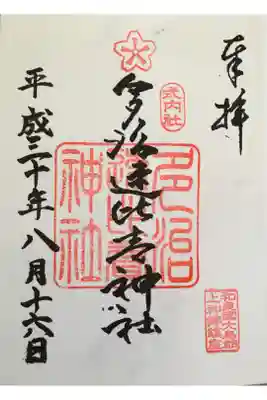 奉拝
式内社
多治速比売神社
多治
速比賣
神社
平成三十年八月十六日
和泉國大鳥郡